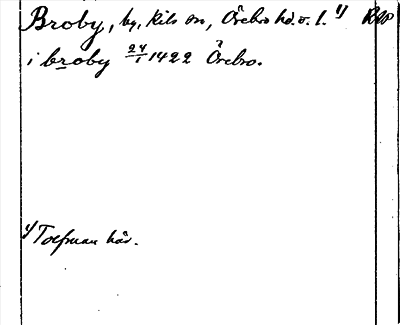 Broby, by, Kils sn, Örebro hd. o. l. 1)
i broby 24/1 1422 Örebro.
1) Tolfman här.